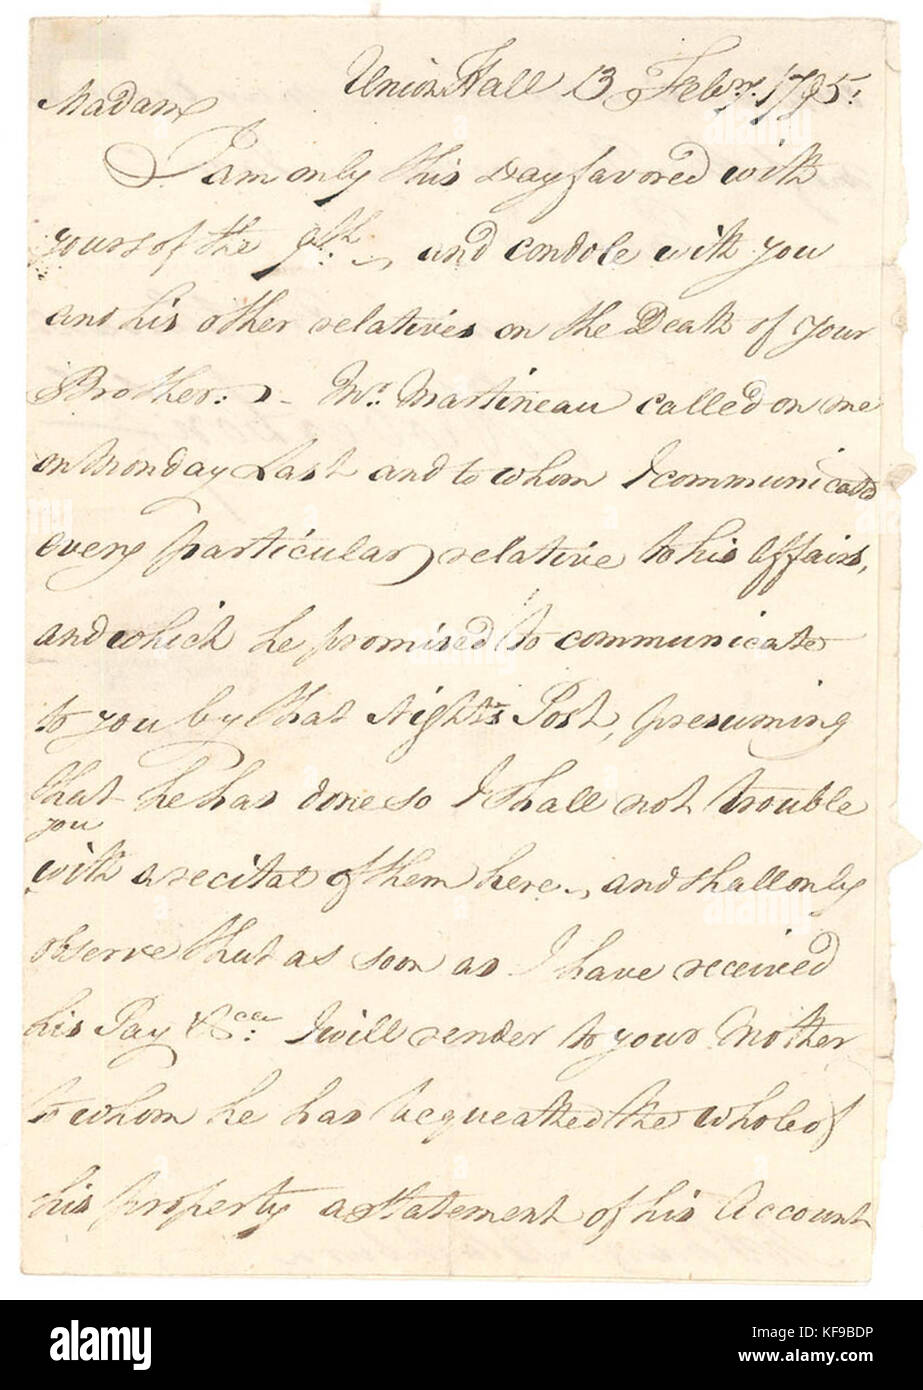 Union Hall 13 Feby. 1795.
Madam
I am only this Day favored with
yours of the 9th., and condole with you
and his other relatives on the Death of your
Brother. - Mr. Martineau called on me
on Monday Last and to whom I communicated
every particular relative to his Affairs,
and which he promised to communicate
to you by that Nights Post, presuming
that he has done so I shall not trouble
you
with a recital of them here, and shall only
observe that as soon as I have received
his Pay &ca: I will render to your Mother
to whom he has bequeathed the whole of
his property a Statement of his Account
alamy
Image ID: KF9BDP
www.alamy.com